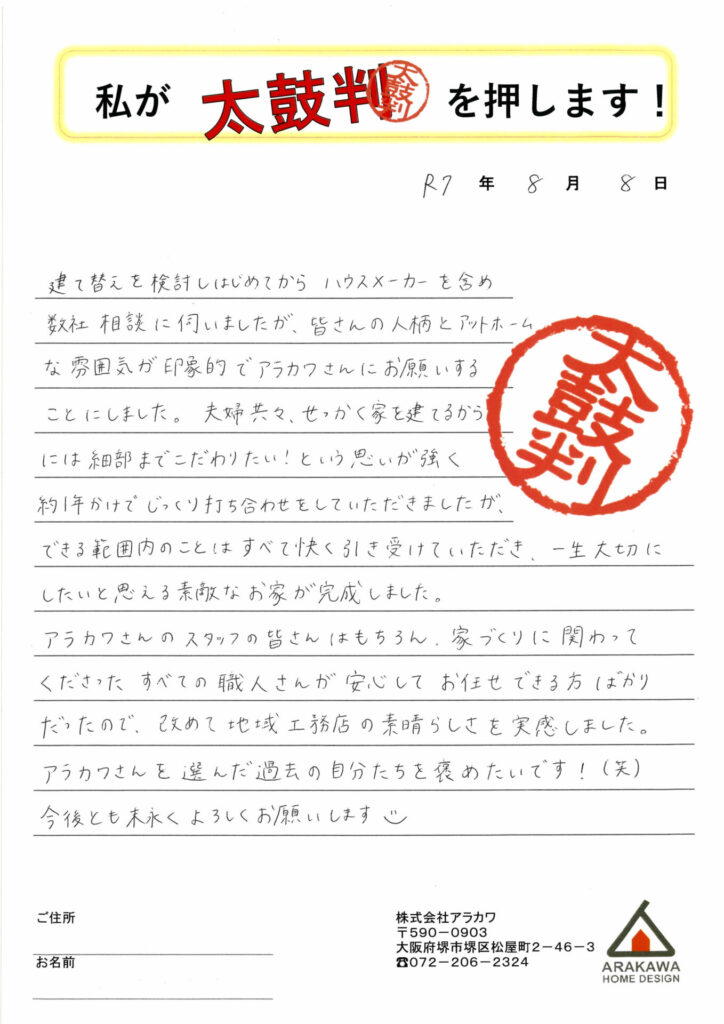 私が 太鼓判 太鼓判 を押します！
R7 年 8 月 8 日
建て替えを検討しはじめてから ハウスメーカーを含め
数社 相談に伺いましたが、皆さんの人柄とアットホーム
な雰囲気が印象的でアラカワさんにお願いする
ことにしました。 夫婦共々、せっかく家を建てるから
には細部までこだわりたい！という思いが強く
約1年かけてじっくり打ち合わせをしていただきましたが、
できる範囲内のことはすべて快く引き受けていただき、一生大切に
したいと思える素敵なお家が完成しました。
アラカワさんのスタッフの皆さんはもちろん、家づくりに関わって
くださった すべての職人さんが 安心して お任せできる方ばかり
だったので、改めて地域工務店の素晴らしさを実感しました。
アラカワさんを選んだ過去の自分たちを褒めたいです！(笑)
今後とも末永くよろしくお願いします
太鼓判
ご住所
お名前
株式会社アラカワ
〒590－0903
大阪府堺市堺区松屋町2－46－3
☎072－206－2324
ARAKAWA
HOME DESIGN